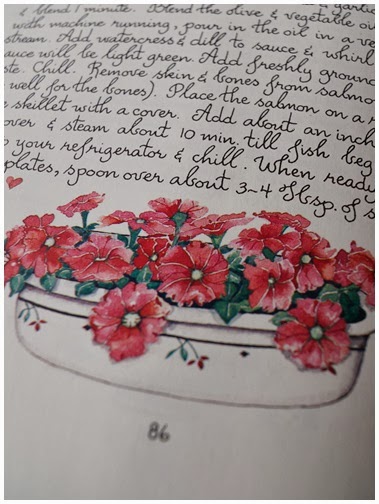 & blend 1 minute. Blend the olive & vegetable oil
with machine running, pour in the oil in a ve
stream. Add watercress & dill to sauce & whirl
auce will be light green. Add freshly ground
ste. Chill. Remove skin & bones from salmo
well for the bones). Place the salmon on a r
e skillet with a cover. Add about an inch
over & steam about 10 min. till fish beg
o your refrigerator & chill. When ready
plates, spoon over about 3-4 Tbsp. of s
86